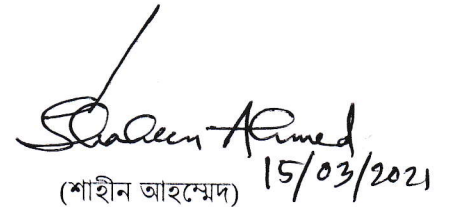 Shaheen Ahmed
15/03/2021
(শাহীন আহম্মেদ)